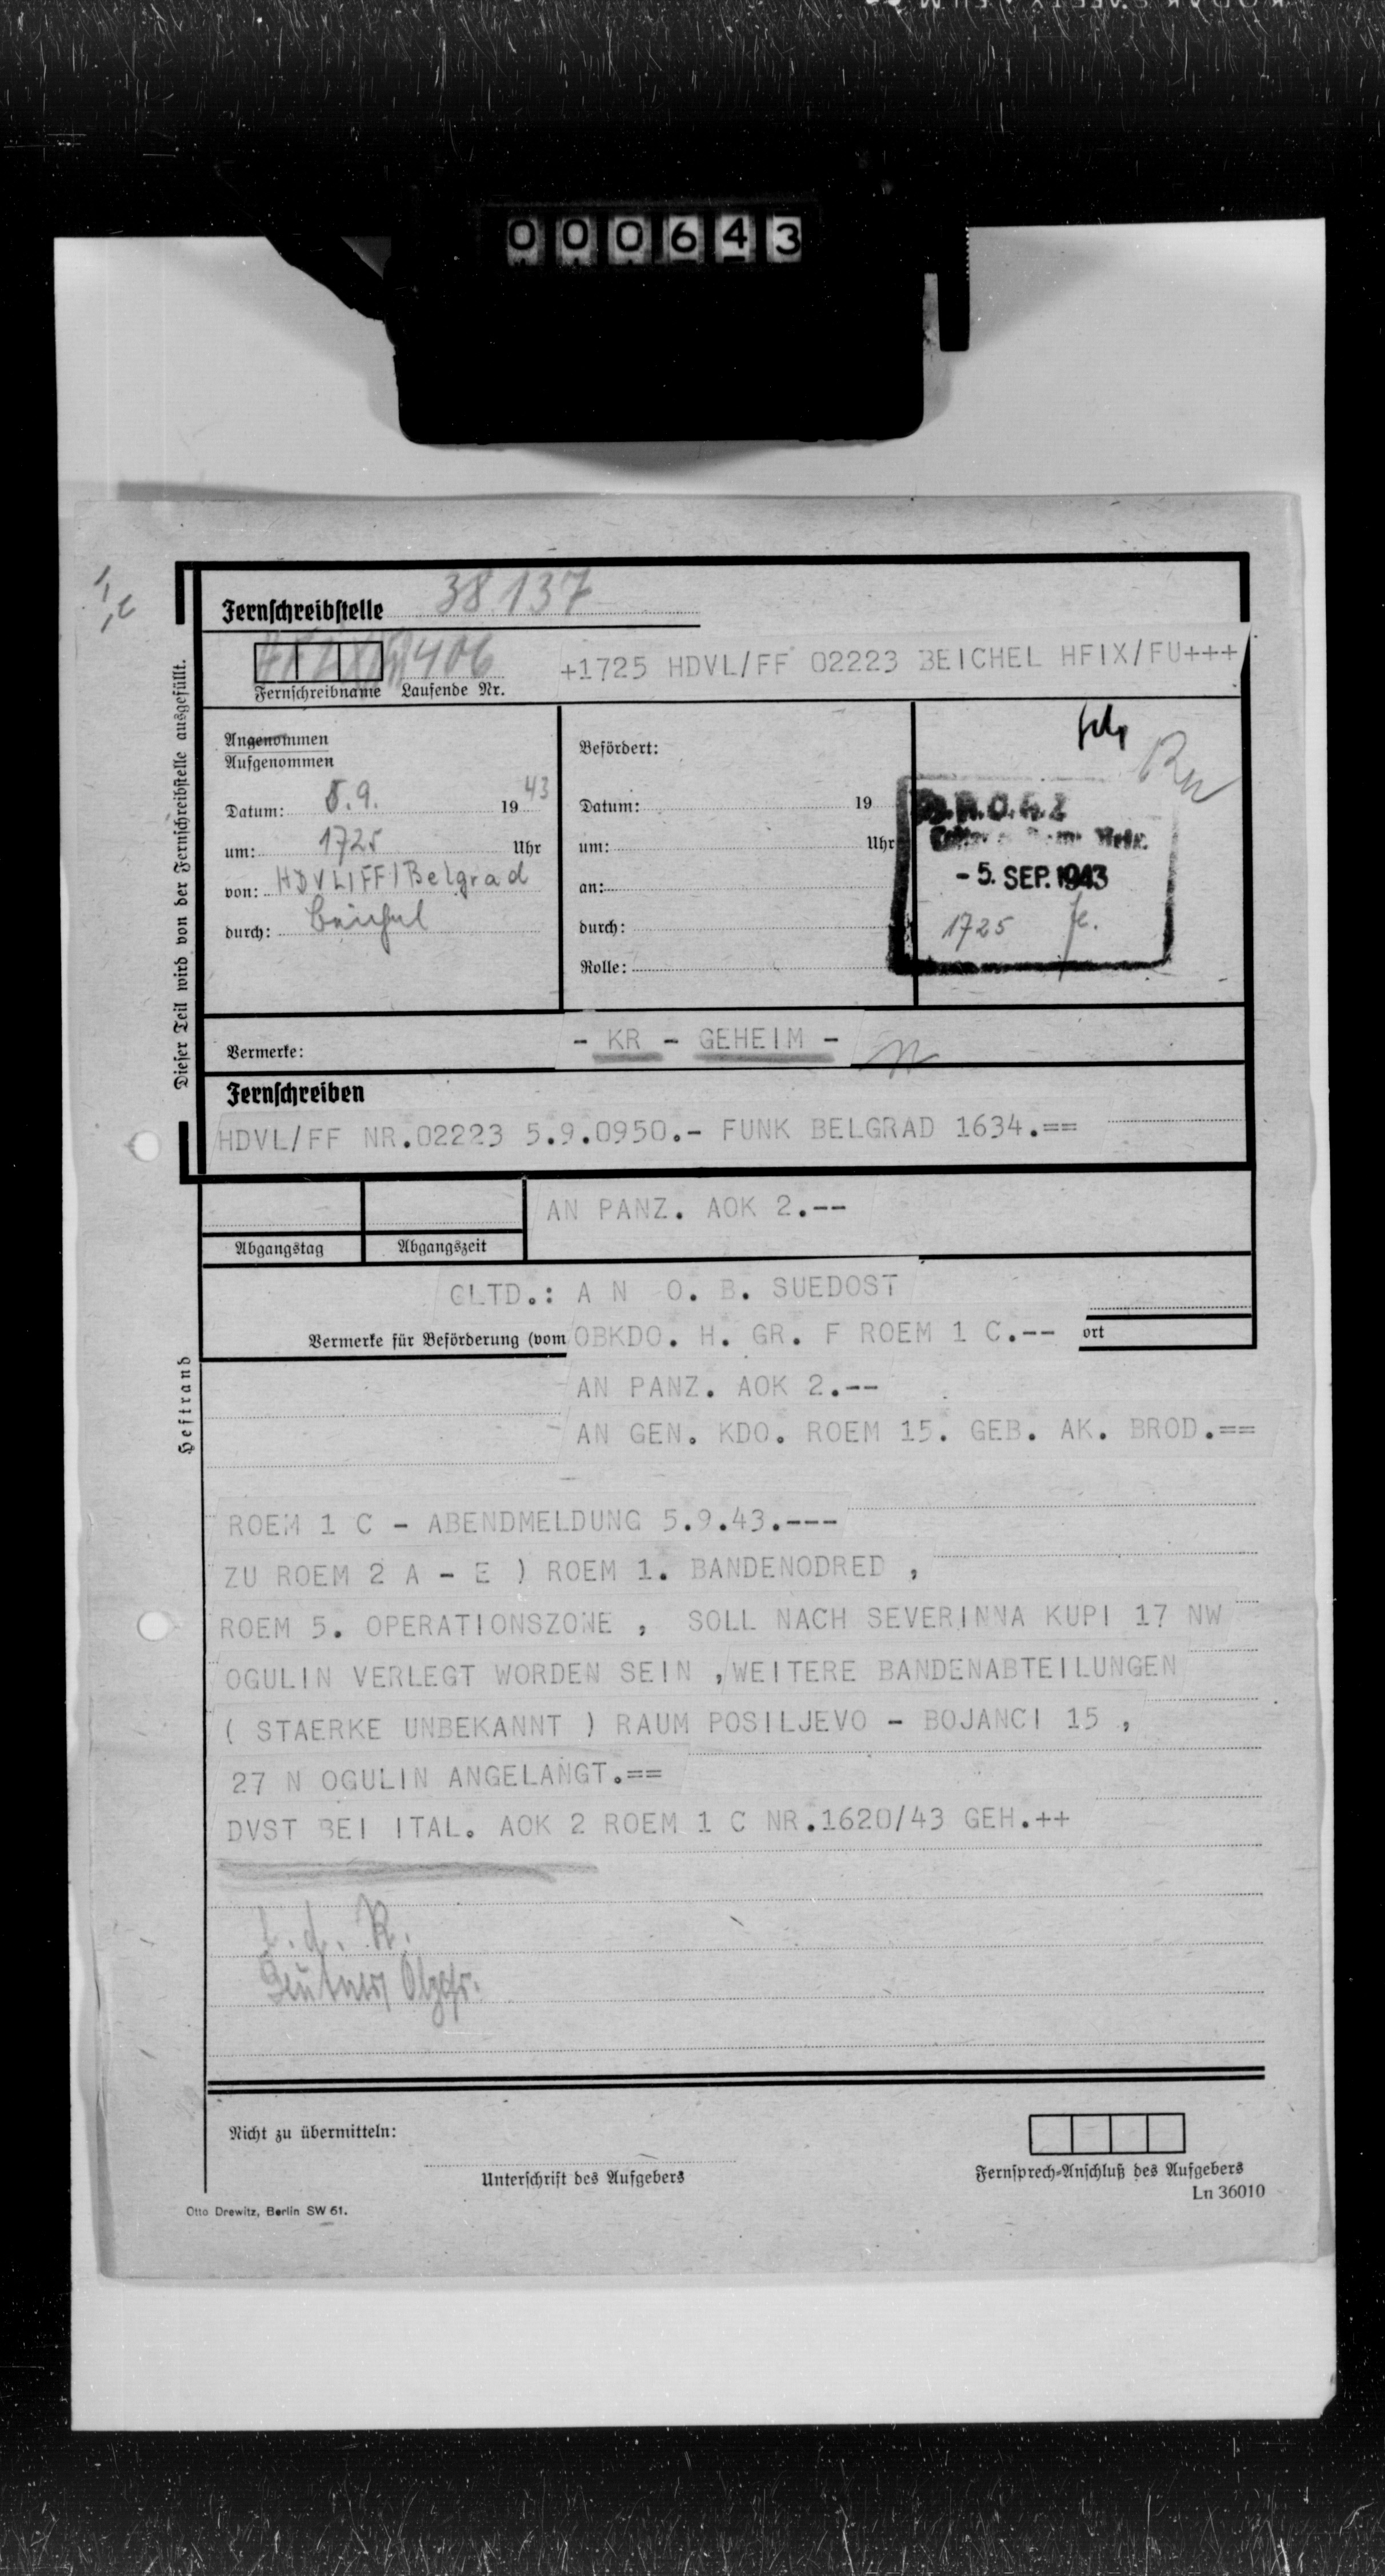 000643
Fernschreibstelle 38137
406 +1725 HDVL/FF 02223 BEICHEL HFIX/FU+++
Fernschreibname Laufende Nr.
Dieser Teil wird von der Fernschreibstelle ausgefüllt.
Angenommen
Aufgenommen
Datum: 5.9. 1943
um: 1725 Uhr
von: HDVL/FF/Belgrad
durch: Beichel
Befördert:
Datum: 19
um: Uhr
an:
durch:
Rolle:
- 5. SEP. 1943
1725
Vermerke: - KR - GEHEIM -
Fernschreiben
HDVL/FF NR.02223 5.9.0950.- FUNK BELGRAD 1634.==
AN PANZ. AOK 2.--
Abgangstag Abgangszeit
GLTD.: A N O. B. SUEDOST
Vermerke für Beförderung (vom OBKDO. H. GR. F ROEM 1 C.-- ort
AN PANZ. AOK 2.--
Heftrand
AN GEN. KDO. ROEM 15. GEB. AK. BROD.==
ROEM 1 C - ABENDMELDUNG 5.9.43.---
ZU ROEM 2 A - E ) ROEM 1. BANDENODRED ,
ROEM 5. OPERATIONSZONE , SOLL NACH SEVERINNA KUPI 17 NW
OGULIN VERLEGT WORDEN SEIN ,WEITERE BANDENABTEILUNGEN
( STAERKE UNBEKANNT ) RAUM POSILJEVO - BOJANCI 15 ,
27 N OGULIN ANGELANGT.==
DVST BEI ITAL. AOK 2 ROEM 1 C NR.1620/43 GEH.++
F.d.R.
Nicht zu übermitteln:
Unterschrift des Aufgebers
Fernsprech-Anschluß des Aufgebers
Ln 36010
Otto Drewitz, Berlin SW 61.